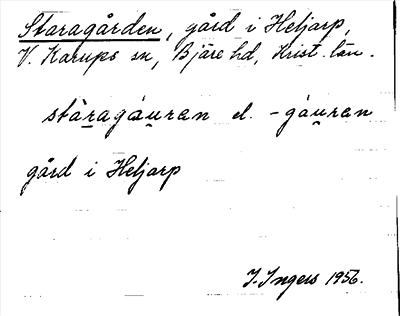 Staragården, gård i Heljarp,
V. Karups sn, Bjäre hd, Krist. län.
stàragáu̯ran el. -gàu̯ran
gård i Heljarp
I. Ingers 1956.